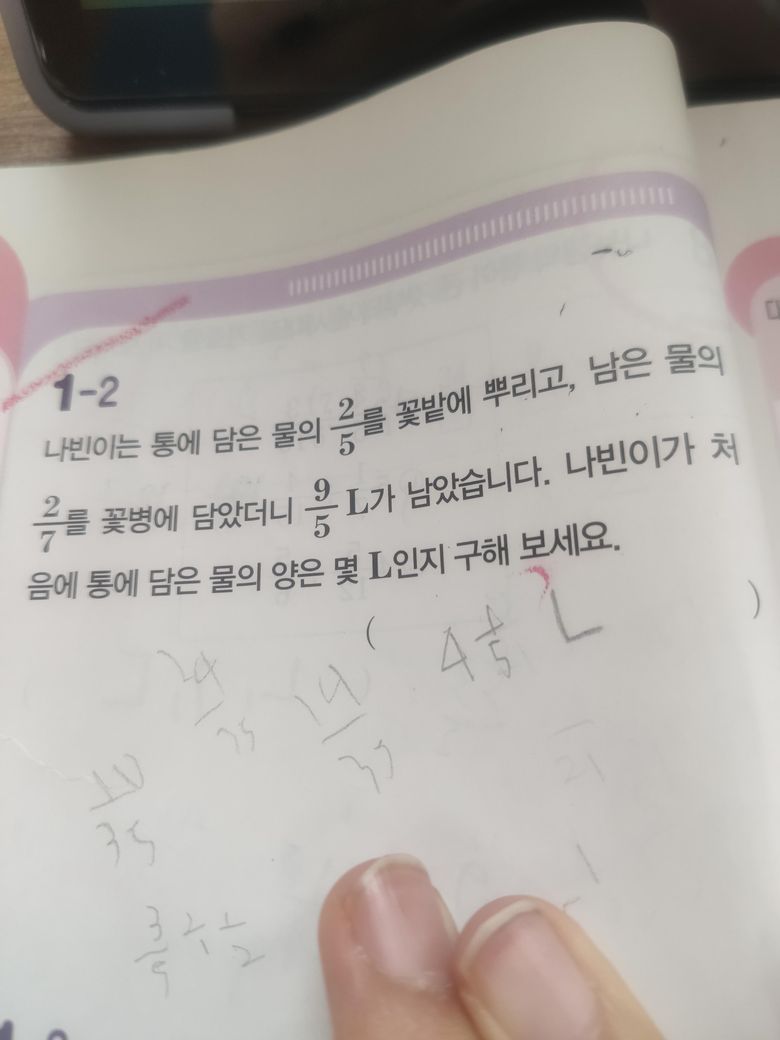 1-2
나빈이는 통에 담은 물의 2/5를 꽃밭에 뿌리고, 남은 물의
2/7를 꽃병에 담았더니 9/5 L가 남았습니다. 나빈이가 처
음에 통에 담은 물의 양은 몇 L인지 구해 보세요.
( 4 1/5 L )
14/35
10/35
21
3/5